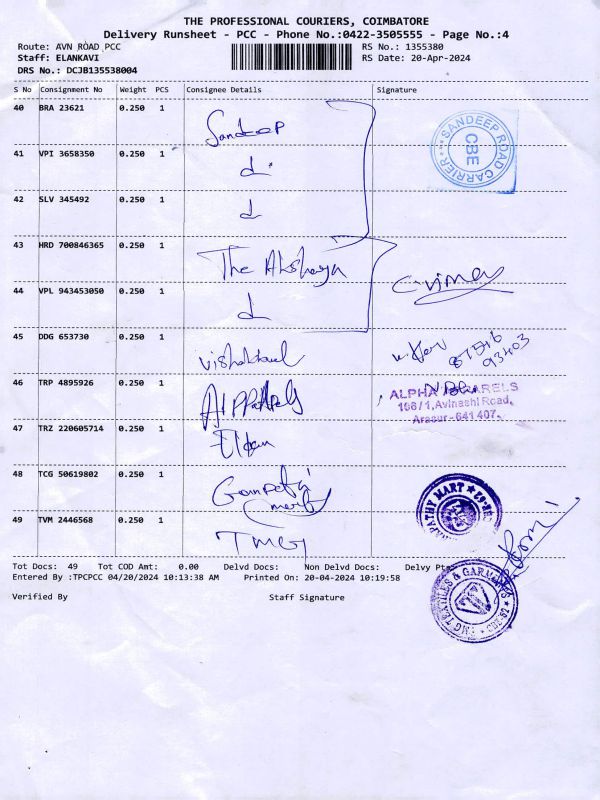 THE PROFESSIONAL COURIERS, COIMBATORE
Delivery Runsheet - PCC - Phone No.:0422-3505555 - Page No.:4
Route: AVN ROAD PCC RS No.: 1355380
Staff: ELANKAVI RS Date: 20-Apr-2024
DRS No.: DCJB135538004
S No Consignment No Weight PCS Consignee Details Signature
40 BRA 23621 0.250 1 Sandeep
SANDEEP ROAD CARRIER
CBE
41 VPI 3658350 0.250 1 d
42 SLV 345492 0.250 1 d
43 HRD 700846365 0.250 1 The Akshaya
44 VPL 943453050 0.250 1 d
45 DDG 653730 0.250 1
93403
46 TRP 4895926 0.250 1
ALPHA APPARELS
Avinashi Road,
Arasur-641 407.
47 TRZ 220605714 0.250 1
48 TCG 50619802 0.250 1 Ganpathi mart
49 TVM 2446568 0.250 1 TMG
Tot Docs: 49 Tot COD Amt: 0.00 Delvd Docs: Non Delvd Docs: Delvy Pts
Entered By :TPCPCC 04/20/2024 10:13:38 AM Printed On: 20-04-2024 10:19:58
Verified By Staff Signature